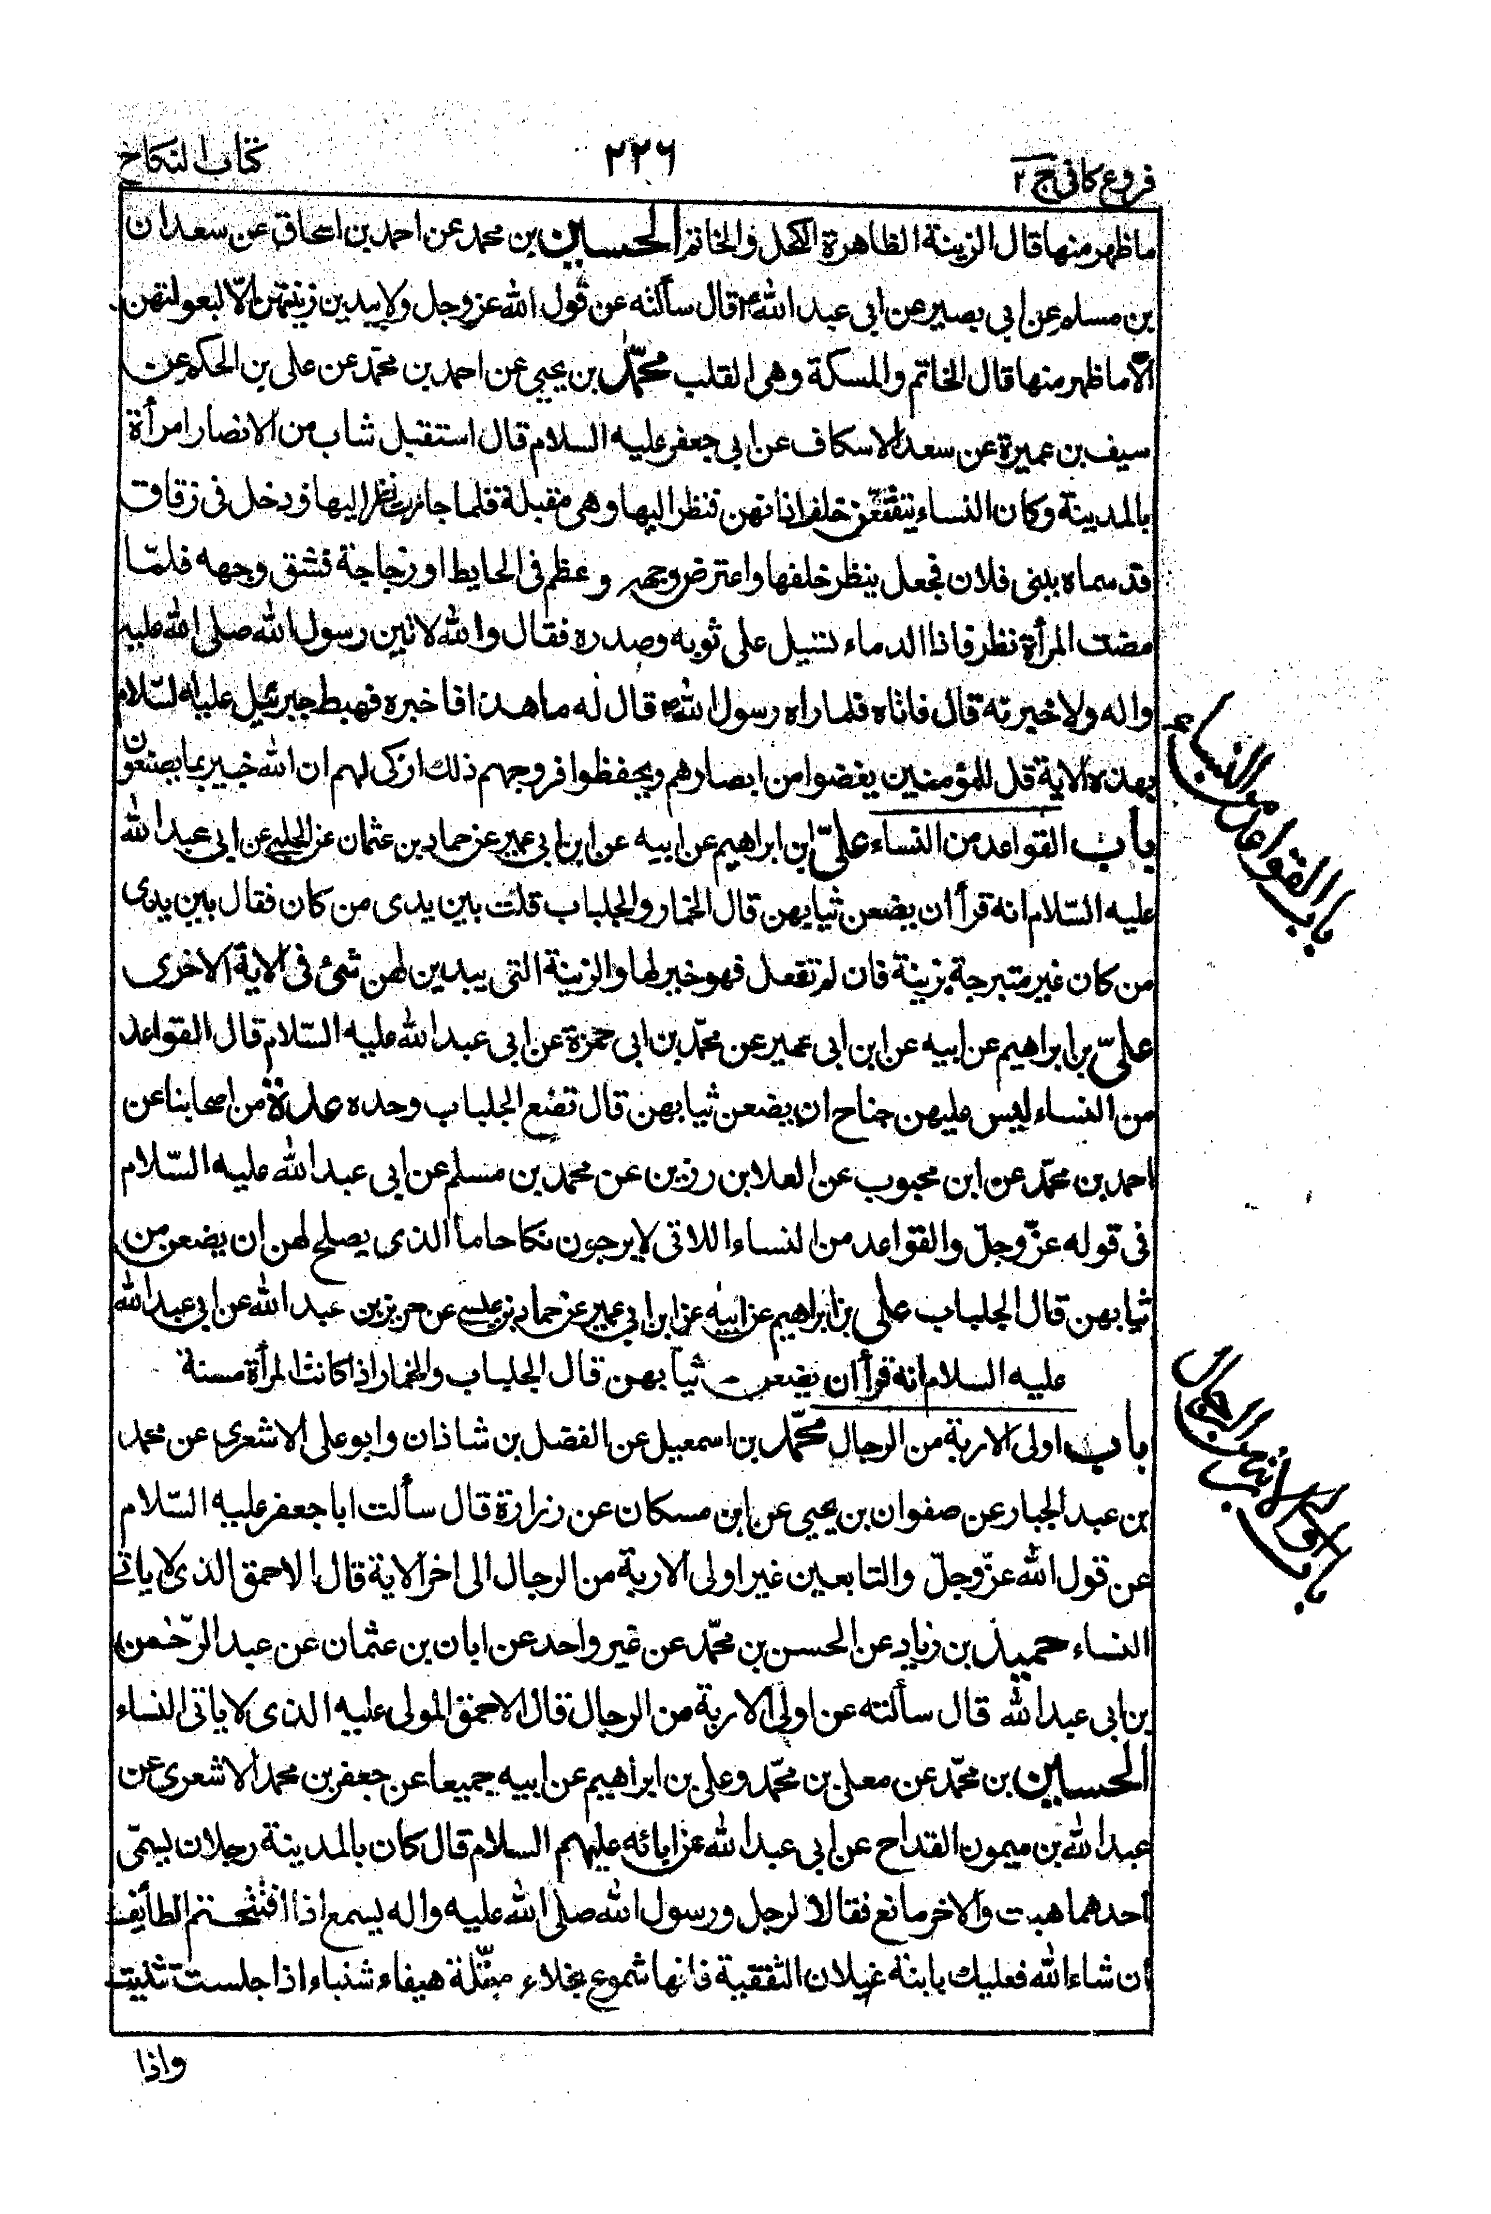 فروع كافى ج ٢
٢٢٦
كتاب النكاح
ماظهر منها قال الزينة الظاهرة الكحل والخاتم الحسين بن محمد عن احمد بن اسحاق عن سعدان
بن مسلم عن ابي بصير عن ابي عبد الله ع قال سألته عن قول الله عز وجل ولا يبدين زينتهن الّا لبعولتهن
الّا ماظهر منها قال الخاتم والمسكة وهي القلب محمّد بن يحيى عن احمد بن محمّد عن على بن الحكم عن
سيف بن عميرة عن سعد الاسكاف عن ابي جعفر عليه السلام قال استقبل شاب من الانصار امرأة
بالمدينة وكان النساء يتقنّعن خلف اذانهن فنظر اليها وهي مقبلة فلما جازت نظر اليها ودخل في زقاق
قد سماه ببنى فلان فجعل ينظر خلفها واعترض وجهه وعظم فى الحايط او زجاجة فشق وجهه فلمّا
مضت المرأة نظر فاذا الدماء تسيل على ثوبه وصدره فقال والله لاتين رسول الله صلى الله عليه
واله ولاخبرنّه قال فاتاه فلما راه رسول الله ص قال له ما هذا فاخبره فهبط جبرئيل عليه السّلام
بهذه الاية قل للمؤمنين يغضوا من ابصارهم ويحفظوا فروجهم ذلك ازكى لهم ان الله خبير بما يصنعون
باب القواعد من النساء علىّ ابن ابراهيم عن ابيه عن ابن ابي عمير عن حماد بن عثمان عن الحلبي عن ابي عبد الله
عليه السّلام انه قرأ ان يضعن ثيابهن قال الخمار والجلباب قلت بين يدى من كان فقال بين يدى
من كان غير متبرجة بزينة فان لم تفعل فهو خير لها والزينة التى يبدين لهن شئ فى الاية الاخرى
علىّ بن ابراهيم عن ابيه عن ابن ابى عمير عن محمّد بن ابي حمزة عن ابى عبد الله عليه السّلام قال القواعد
من النساء ليس عليهن جناح ان يضعن ثيابهن قال تضع الجلباب وحده عدة من اصحابنا عن
احمد بن محمّد عن ابن محبوب عن العلا بن رزين عن محمد بن مسلم عن ابى عبد الله عليه السّلام
فى قوله عزّ وجلّ والقواعد من النساء اللاتى لا يرجون نكاحا ما الذى يصلح لهن ان يضعن من
ثيابهن قال الجلباب على بن ابراهيم عن ابيه عن ابن ابي عمير عن حماد بن عيسى عن حريز بن عبد الله عن ابي عبد الله
عليه السلام انه قرأ ان يضعن ثيابهن قال الجلباب والخمار اذا كانت المرأة مسنة
باب اولى الاربة من الرجال محمّد بن اسمعيل عن الفضل بن شاذان وابو على الاشعرى عن محمد
بن عبد الجبار عن صفوان بن يحيى عن ابن مسكان عن زرارة قال سألت ابا جعفر عليه السّلام
عن قول الله عزّ وجلّ والتابعين غير اولى الاربة من الرجال الى اخر الاية قال الاحمق الذى لا ياتى
النساء حميد بن زياد عن الحسن بن محمّد عن غير واحد عن ابان بن عثمان عن عبد الرّحمن
بن ابى عبد الله قال سألته عن اولى الاربة من الرجال قال الاحمق المولى عليه الذى لا ياتى النساء
الحسين بن محمّد عن معلى بن محمّد وعلى بن ابراهيم عن ابيه جميعا عن جعفر بن محمد الاشعري عن
عبد الله بن ميمون القداح عن ابى عبد الله عن ابائه عليهم السلام قال كان بالمدينة رجلان يسمّى
احدهما هيت والاخر مانع فقالا لرجل ورسول الله صلى الله عليه واله يسمع اذا افتتحتم الطائف
ان شاء الله فعليك بابنة غيلان الثقفية فانها شموع نجلاء مبتّلة هيفاء شنباء اذا جلست تثنيت
واذا
باب القواعد من النساء
باب اولى الاربة من الرجال